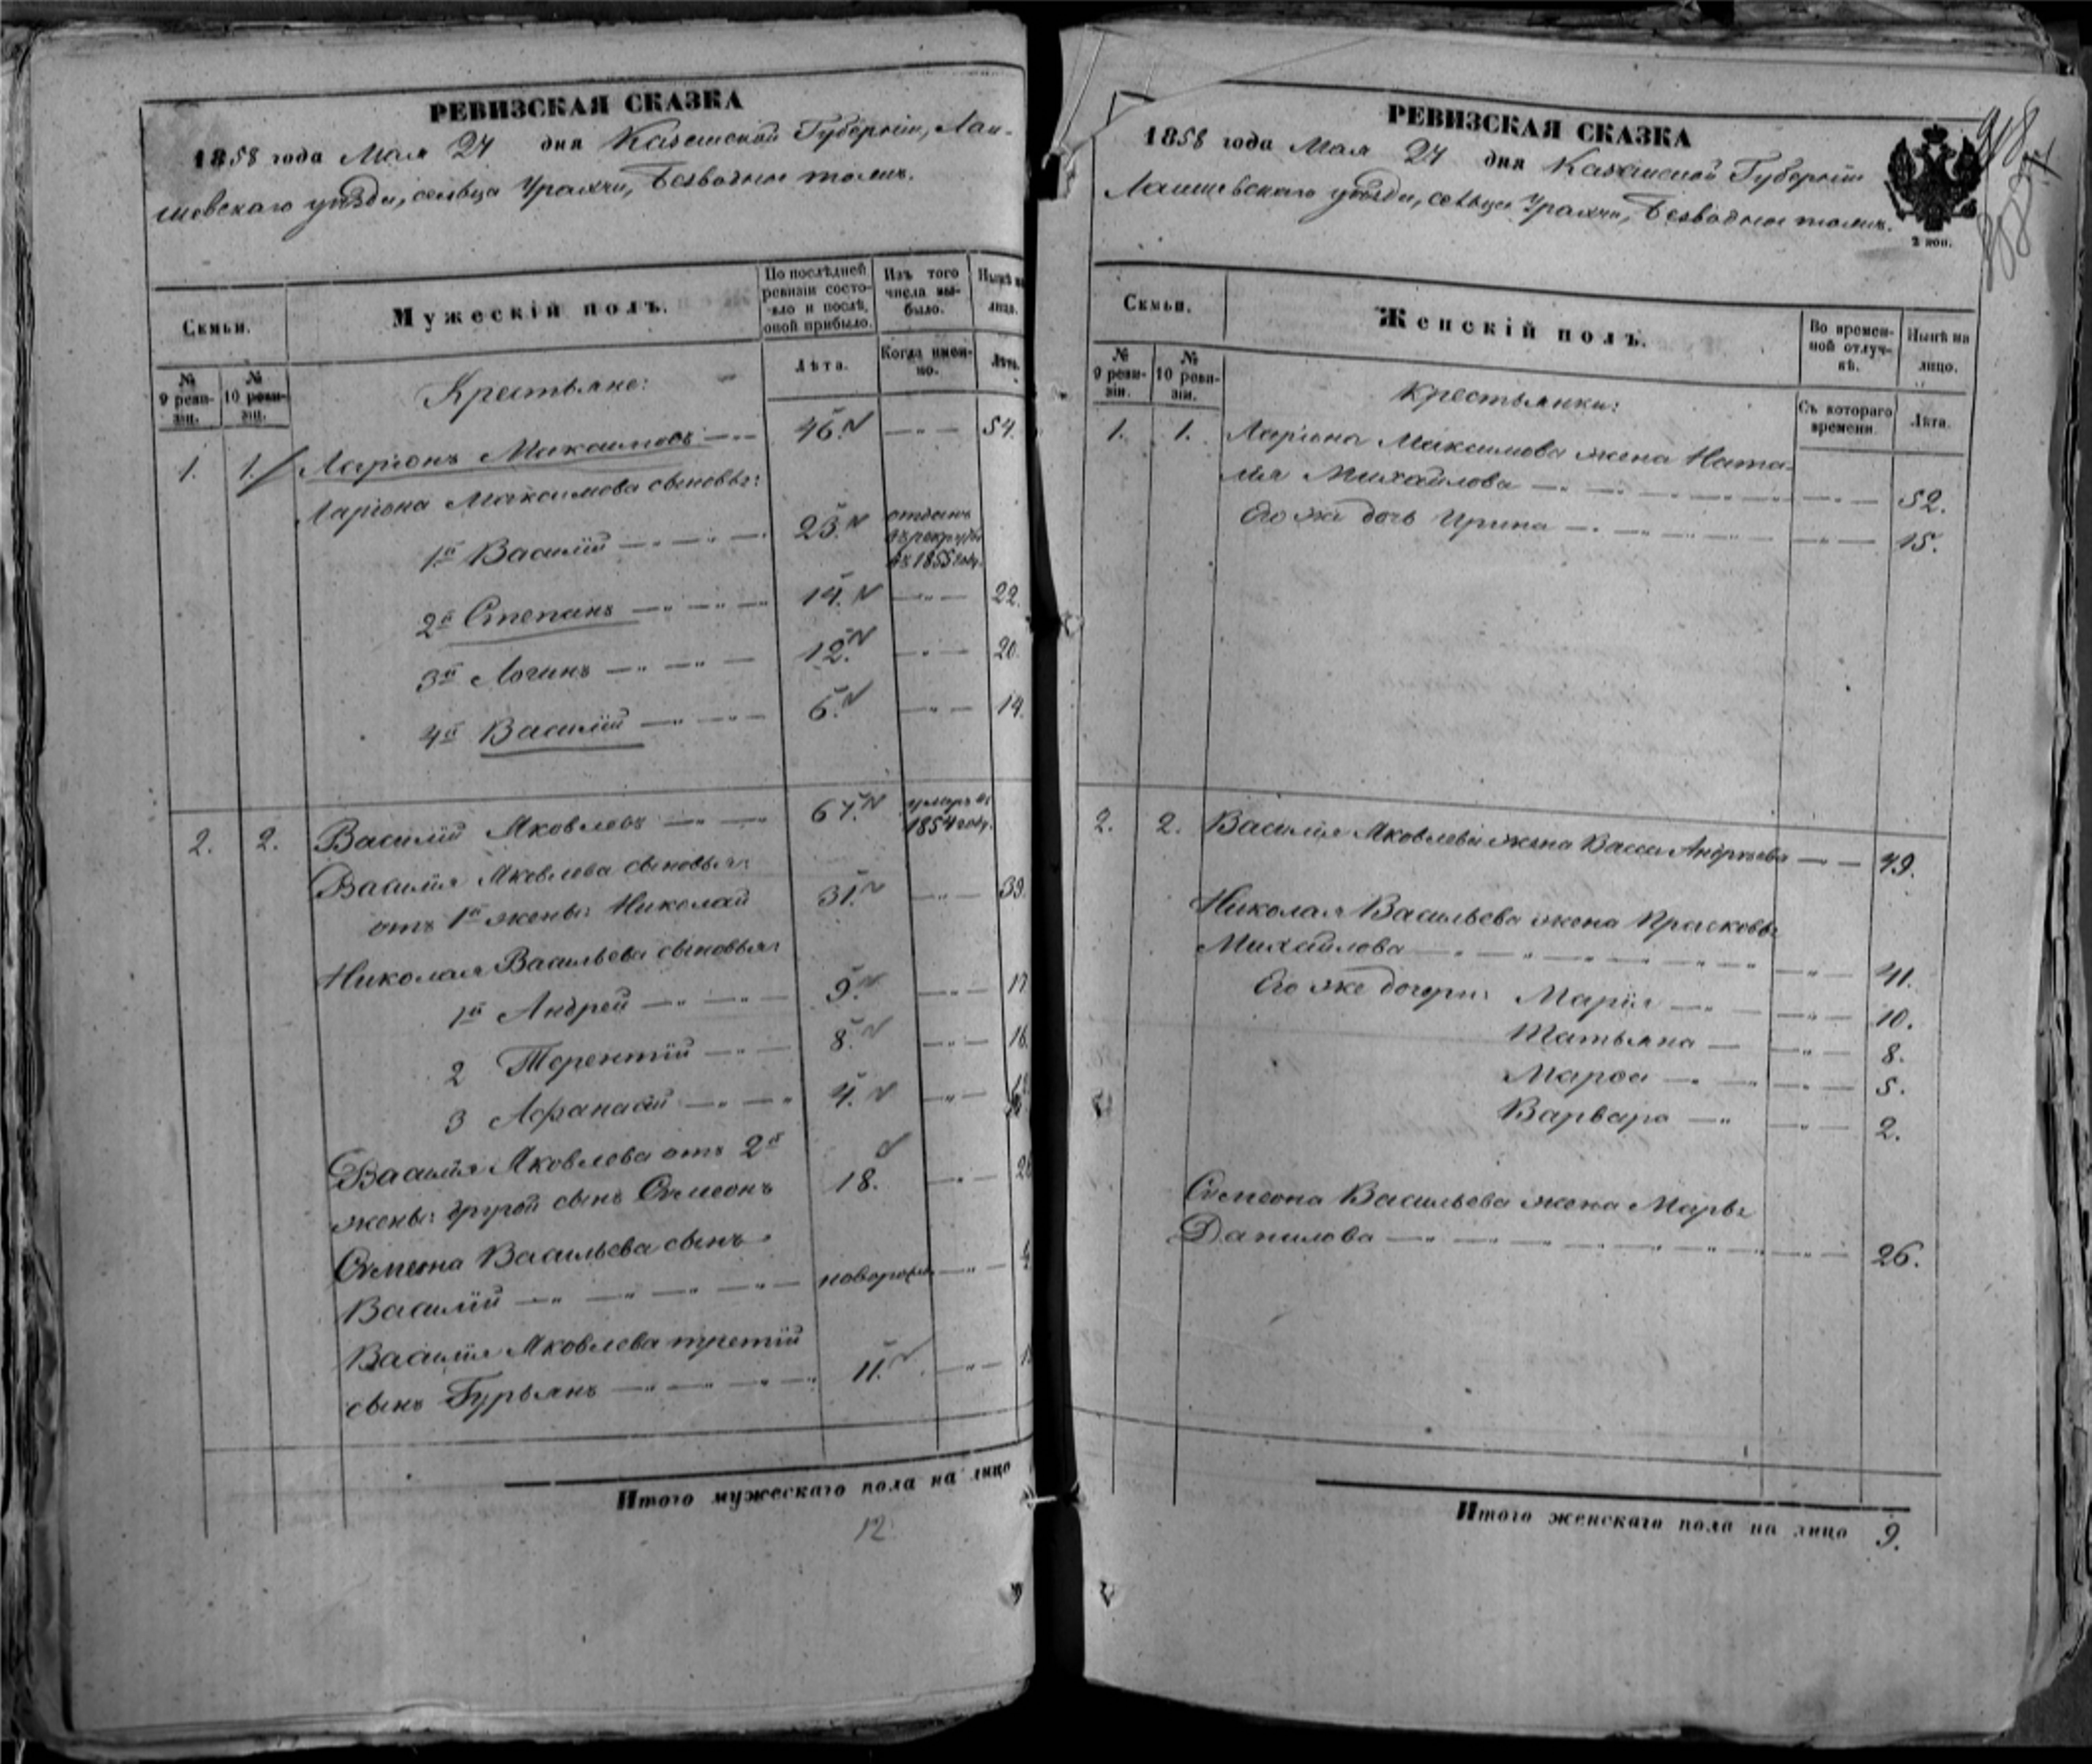 РЕВИЗСКАЯ СКАЗКА
1858 года Мая 24 дня Казанской Губернiи, Лаи-
шевскаго уѣзда, сельца Урахчи, Безводное тожъ.
Семьи.
Мужескiй полъ.
По послѣдней ревизiи состо-яло и послѣ оной прибыло.
Изъ того числа вы-было.
Нынѣ на лицо.
№ 9 реви-зiи.
№ 10 реви-зiи.
Лѣта.
Когда имен-но.
Лѣта.
Крестьяне:
1. 1. Ларiонъ Максимовъ 46. 54.
Ларiона Максимова сыновья:
1й Василiй 23. отданъ въ рекруты въ 1855 году.
2й Степанъ 14. 22.
3й Логинъ 12. 20.
4й Василiй 6. 14.
2. 2. Василiй Яковлевъ 67. умеръ въ 1854 году.
Василiя Яковлева сыновья:
отъ 1й жены: Николай 31. 39.
Николая Васильева сыновья:
1й Андрей 9. 17
2 Терентiй 8. 16.
3 Афанасiй 4.
Василiя Яковлева отъ 2й
жены: другой сынъ Семеонъ 18.
Семеона Васильева сынъ
Василiй новорожд.
Василiя Яковлева третiй
сынъ Гурьянъ 11.
Итого мужескаго пола на лицо
12
РЕВИЗСКАЯ СКАЗКА
1858 года Мая 24 дня Казанской Губернiи
Лаишевскаго уѣзда, сельца Урахчи, Безводное тожъ.
2 коп.
Семьи.
Женскiй полъ.
Во времен-ной отлуч-кѣ.
Нынѣ на лицо.
№ 9 реви-зiи.
№ 10 реви-зiи.
Съ котораго времени.
Лѣта.
Крестьянки:
1. 1. Ларiона Максимова жена Ната-
лiя Михайлова 52.
Его же дочь Ирина 15.
2. 2. Василiя Яковлева жена Васса Андреева 49.
Николая Васильева жена Прасковья
Михайлова 41.
Его же дочери: Марiя 10.
Татьяна 8.
Марѳа 5.
Варвара 2.
Семеона Васильева жена Марья
Данилова 26.
Итого женскаго пола на лицо 9.